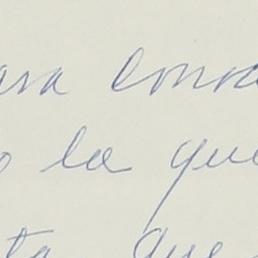 ara conoc
o la que
ta que